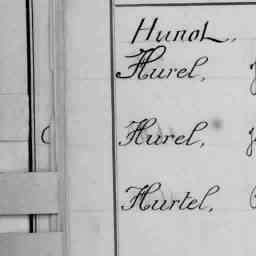 Hunot,
Hurel,
Hurel,
Hurtel,